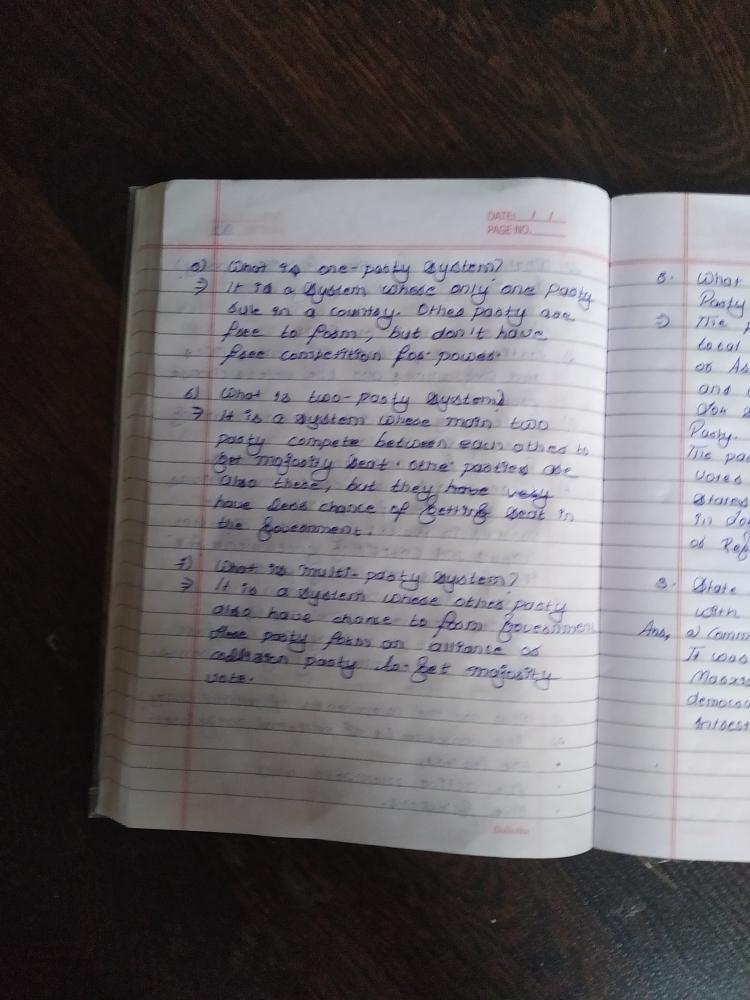 DATE: / /
PAGE NO.
5) What is one-party system?
⇒ It is a system where only one party
rule in a country. Other party are
free to form, but don't have
free competition for power.
6) What is two-party system?
⇒ It is a system where main two
party compete between each other to
get majority seat. other parties are
also there, but they have very
have less chance of getting seat in
the government.
7) What is multi-party system?
⇒ It is a system where other party
also have chance to form government
party form an alliance or
party to get majority
vote.
8. What
Party
⇒ The
total
of As
and
Party.
The pa
votes
States
in
of Rep
9. State
with
Ans, a) Comm
It was
Marxis
democra
interest